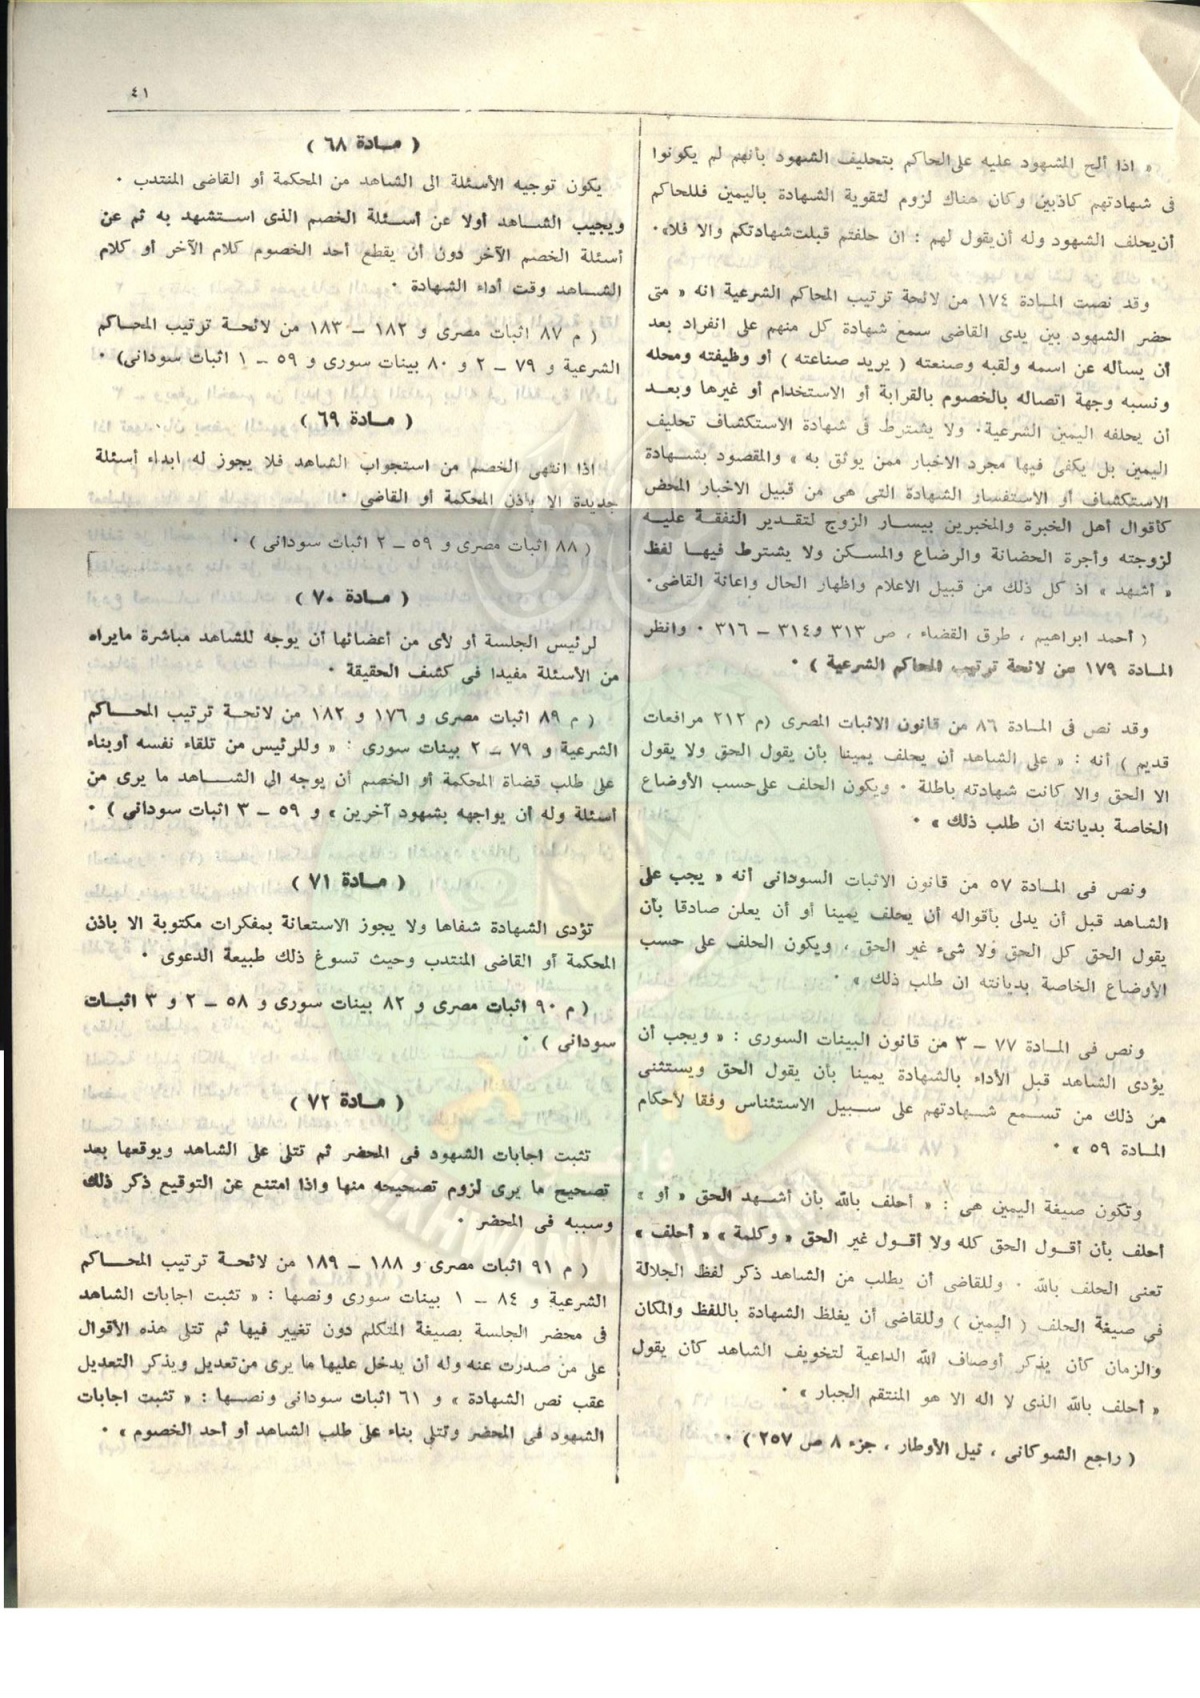 ٤١
« اذا ألح المشهود عليه على الحاكم بتحليف الشهود بأنهم لم يكونوا
فى شهادتهم كاذبين وكان هناك لزوم لتقوية الشهادة باليمين فللحاكم
أن يحلف الشهود وله أن يقول لهم : ان حلفتم قبلت شهادتكم والا فلا» ٠
وقد نصت المـادة ١٧٤ من لائحة ترتيب المحاكم الشرعية انه « متى
حضر الشهود بين يدى القاضى سمع شهادة كل منهم على انفراد بعد
أن يسأله عن اسمه ولقبه وصنعته ( يريد صناعته ) أو وظيفته ومحله
ونسبه وجهة اتصاله بالخصوم بالقرابة أو الاستخدام أو غيرها وبعـد
أن يحلفه اليمين الشرعية٠ ولا يشترط فى شهادة الاستكشاف تحليف
اليمين بل يكفى فيها مجرد الاخبار ممن يوثق به » والمقصود بشـهادة
الاستكشاف أو الاستفسار الشهادة التى هى من قبيل الاخبار المحض
كأقوال أهل الخبرة والمخبرين بيسـار الزوج لتقـدير النفقـة عليـه
لزوجته وأجرة الحضانة والرضاع والمسكن ولا يشترط فيهـا لفظ
« أشهد » اذ كل ذلك من قبيل الاعلام واظهار الحال واعانة القاضى٠
( أحمد ابراهيم ، طرق القضاء ، ص ٣١٣ و٣١٤ – ٣١٦ ٠ وانظر
المادة ١٧٩ من لائحة ترتيب المحاكم الشرعية ) ٠
وقد نص فى المـادة ٨٦ من قانون الاثبات المصرى (م ٢١٢ مرافعات
قديم ) أنه : « على الشاهد أن يحلف يمينا بأن يقول الحق ولا يقول
الا الحق والا كانت شهادته باطلة ٠ ويكون الحلف على حسب الأوضاع
الخاصة بديانته ان طلب ذلك » ٠
ونص فى المـادة ٥٧ من قانون الاثبات السودانى أنه « يجب على
الشاهد قبل أن يدلى بأقواله أن يحلف يمينا أو أن يعلن صادقا بأن
يقول الحق كل الحق ولا شىء غير الحق ، ويكون الحلف على حسب
الأوضاع الخاصة بديانته ان طلب ذلك » ٠
ونص فى المـادة ٧٧ – ٣ من قانون البينات السورى : « ويجب أن
يؤدى الشاهد قبل الأداء بالشهادة يمينا بأن يقول الحق ويستثنى
من ذلك من تسـمع شـهادتهم على سـبيل الاستئناس وفقا لأحكام
المـادة ٥٩ » ٠
وتكون صيغة اليمين هى : « أحلف بالله بأن أشـهد الحق « أو »
أحلف بأن أقـول الحق كله ولا أقـول غير الحق « وكلمة » « أحلف »
تعنى الحلف بالله ٠ وللقاضى أن يطلب من الشاهد ذكر لفظ الجلالة
فى صيغة الحلف ( اليمين ) وللقاضى أن يغلظ الشهادة باللفظ والمكان
والزمان كأن يذكر أوصاف الله الداعية لتخويف الشاهد كأن يقول
« أحلف بالله الذى لا اله الا هو المنتقم الجبار » ٠
( راجع الشوكانى ، نيل الأوطار ، جزء ٨ ص ٢٥٧ ) ٠
( مـادة ٦٨ )
يكون توجيه الأسئلة الى الشاهد من المحكمة أو القاضى المنتدب ٠
ويجيب الشـاهد أولا عن أسـئلة الخصم الذى اسـتشهد به ثم عن
أسئلة الخصم الآخر دون أن يقطع أحد الخصوم كلام الآخر أو كلام
الشـاهد وقت أداء الشهادة ٠
( م ٨٧ اثبات مصرى و ١٨٢ – ١٨٣ من لائحـة ترتيب المحـاكم
الشرعية و ٧٩ – ٢ و ٨٠ بينات سورى و ٥٩ – ١ اثبات سودانى) ٠
( مـادة ٦٩ )
اذا انتهى الخصم من استجواب الشاهد فلا يجوز له ابداء أسئلة
جديدة الا باذن المحكمة أو القاضى ٠
( ٨٨ اثبات مصرى و ٥٩ – ٢ اثبات سودانى ) ٠
( مـادة ٧٠ )
لرئيس الجلسة أو لأى من أعضائها أن يوجه للشاهد مباشرة مايراه
من الأسئلة مفيدا فى كشف الحقيقة ٠
( م ٨٩ اثبات مصرى و ١٧٦ و ١٨٢ من لائحـة ترتيب المحـاكم
الشرعية و ٧٩ – ٢ بينات سورى : « وللرئيس من تلقاء نفسه أو بناء
على طلب قضاة المحكمة أو الخصم أن يوجه الى الشـاهد ما يرى من
أسئلة وله أن يواجهه بشهود آخرين » و ٥٩ – ٣ اثبات سودانى ) ٠
( مـادة ٧١ )
تؤدى الشهادة شفاها ولا يجوز الاستعانة بمفكرات مكتوبة الا باذن
المحكمة أو القاضى المنتدب وحيث تسوغ ذلك طبيعة الدعوى ٠
( م ٩٠ اثبات مصرى و ٨٢ بينات سورى و ٥٨ – ٢ و ٣ اثبـات
سودانى ) ٠
( مـادة ٧٢ )
تثبت اجابات الشهود فى المحضر ثم تتلى على الشاهد ويوقعها بعد
تصحيح ما يرى لزوم تصحيحه منها واذا امتنع عن التوقيع ذكر ذلك
وسببه فى المحضر ٠
( م ٩١ اثبات مصرى و ١٨٨ – ١٨٩ من لائحـة ترتيب المحـاكم
الشرعية و ٨٤ – ١ بينات سورى ونصها : « تثبت اجابات الشاهد
فى محضر الجلسة بصيغة المتكلم دون تغيير فيها ثم تتلى هذه الأقوال
على من صدرت عنه وله أن يدخل عليها ما يرى من تعديل ويذكر التعديل
عقب نص الشهادة » و ٦١ اثبات سودانى ونصـها : « تثبت اجابات
الشهود فى المحضر وتتلى بناء على طلب الشاهد أو أحد الخصوم » ٠